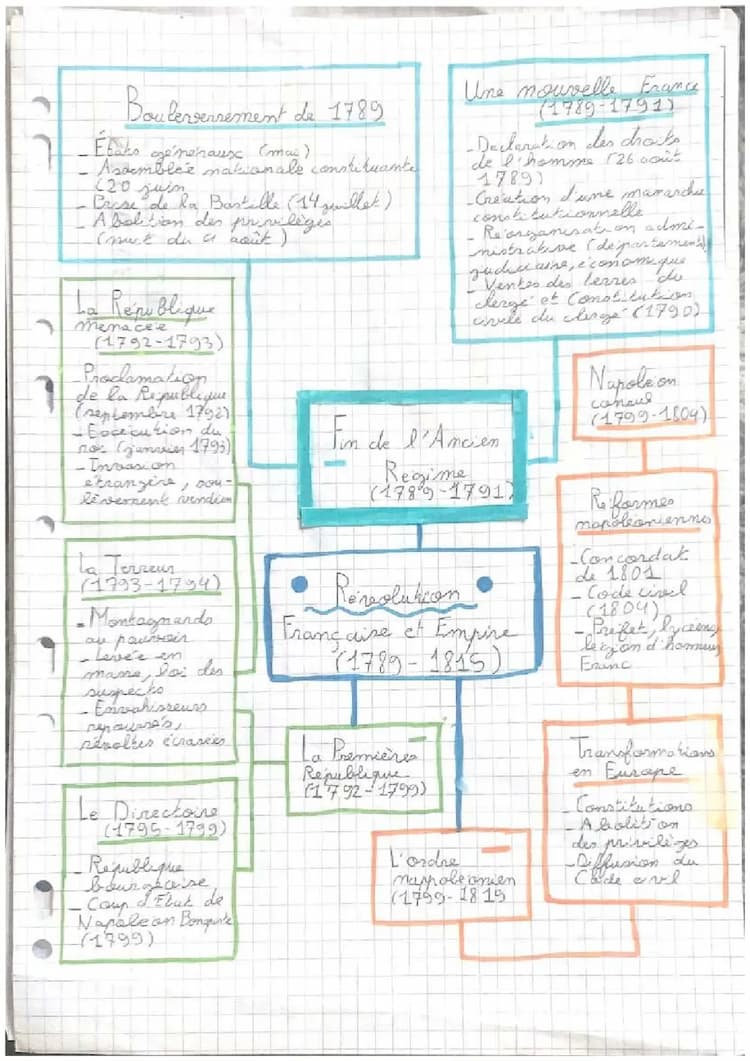 Bouleversement de 1789
- États généraux (mai)
- Assemblée nationale constituante
(20 juin
- Prise de la Bastille (14 juillet)
- Abolition des privilèges
(nuit du 4 août)
Une nouvelle France
(1789-1791)
- Declaration des droits
de l'homme (26 août
1789)
- Création d'une monarchie
constitutionnelle
- Réorganisation admi-
nistrative (départements)
judiciaire, économique
- Ventes des terres du
clergé et Constitution
civile du clergé (1790)
La République
menacée
(1792-1793)
- Proclamation
de la République
(septembre 1792)
- Exécution du
roi (janvier 1793)
- Invasion
étrangère, sou-
lèvement vendéen
Fin de l'Ancien
Regime
(1789-1791)
Napoléon
consul
(1799-1804)
Réformes
napoléoniennes
- Concordat
de 1801
- Code civil
(1804)
- Préfet, lycéens,
legion d'honneur
Franc
La Terreur
(1793-1794)
- Montagnards
au pouvoir
- Levée en
masse, loi des
suspects
- Envahisseurs
repoussés,
révoltes écrasées
Révolution
Française et Empire
(1789-1815)
La Premières
République
(1792-1799)
Transformations
en Europe
- Constitutions
- Abolition
des privilèges
- Diffusion du
Code civil
Le Directoire
(1795-1799)
- République
bourgeoise
- Coup d'État de
Napoléon Bonaparte
(1799)
L'ordre
nappoléonien
(1799-1815